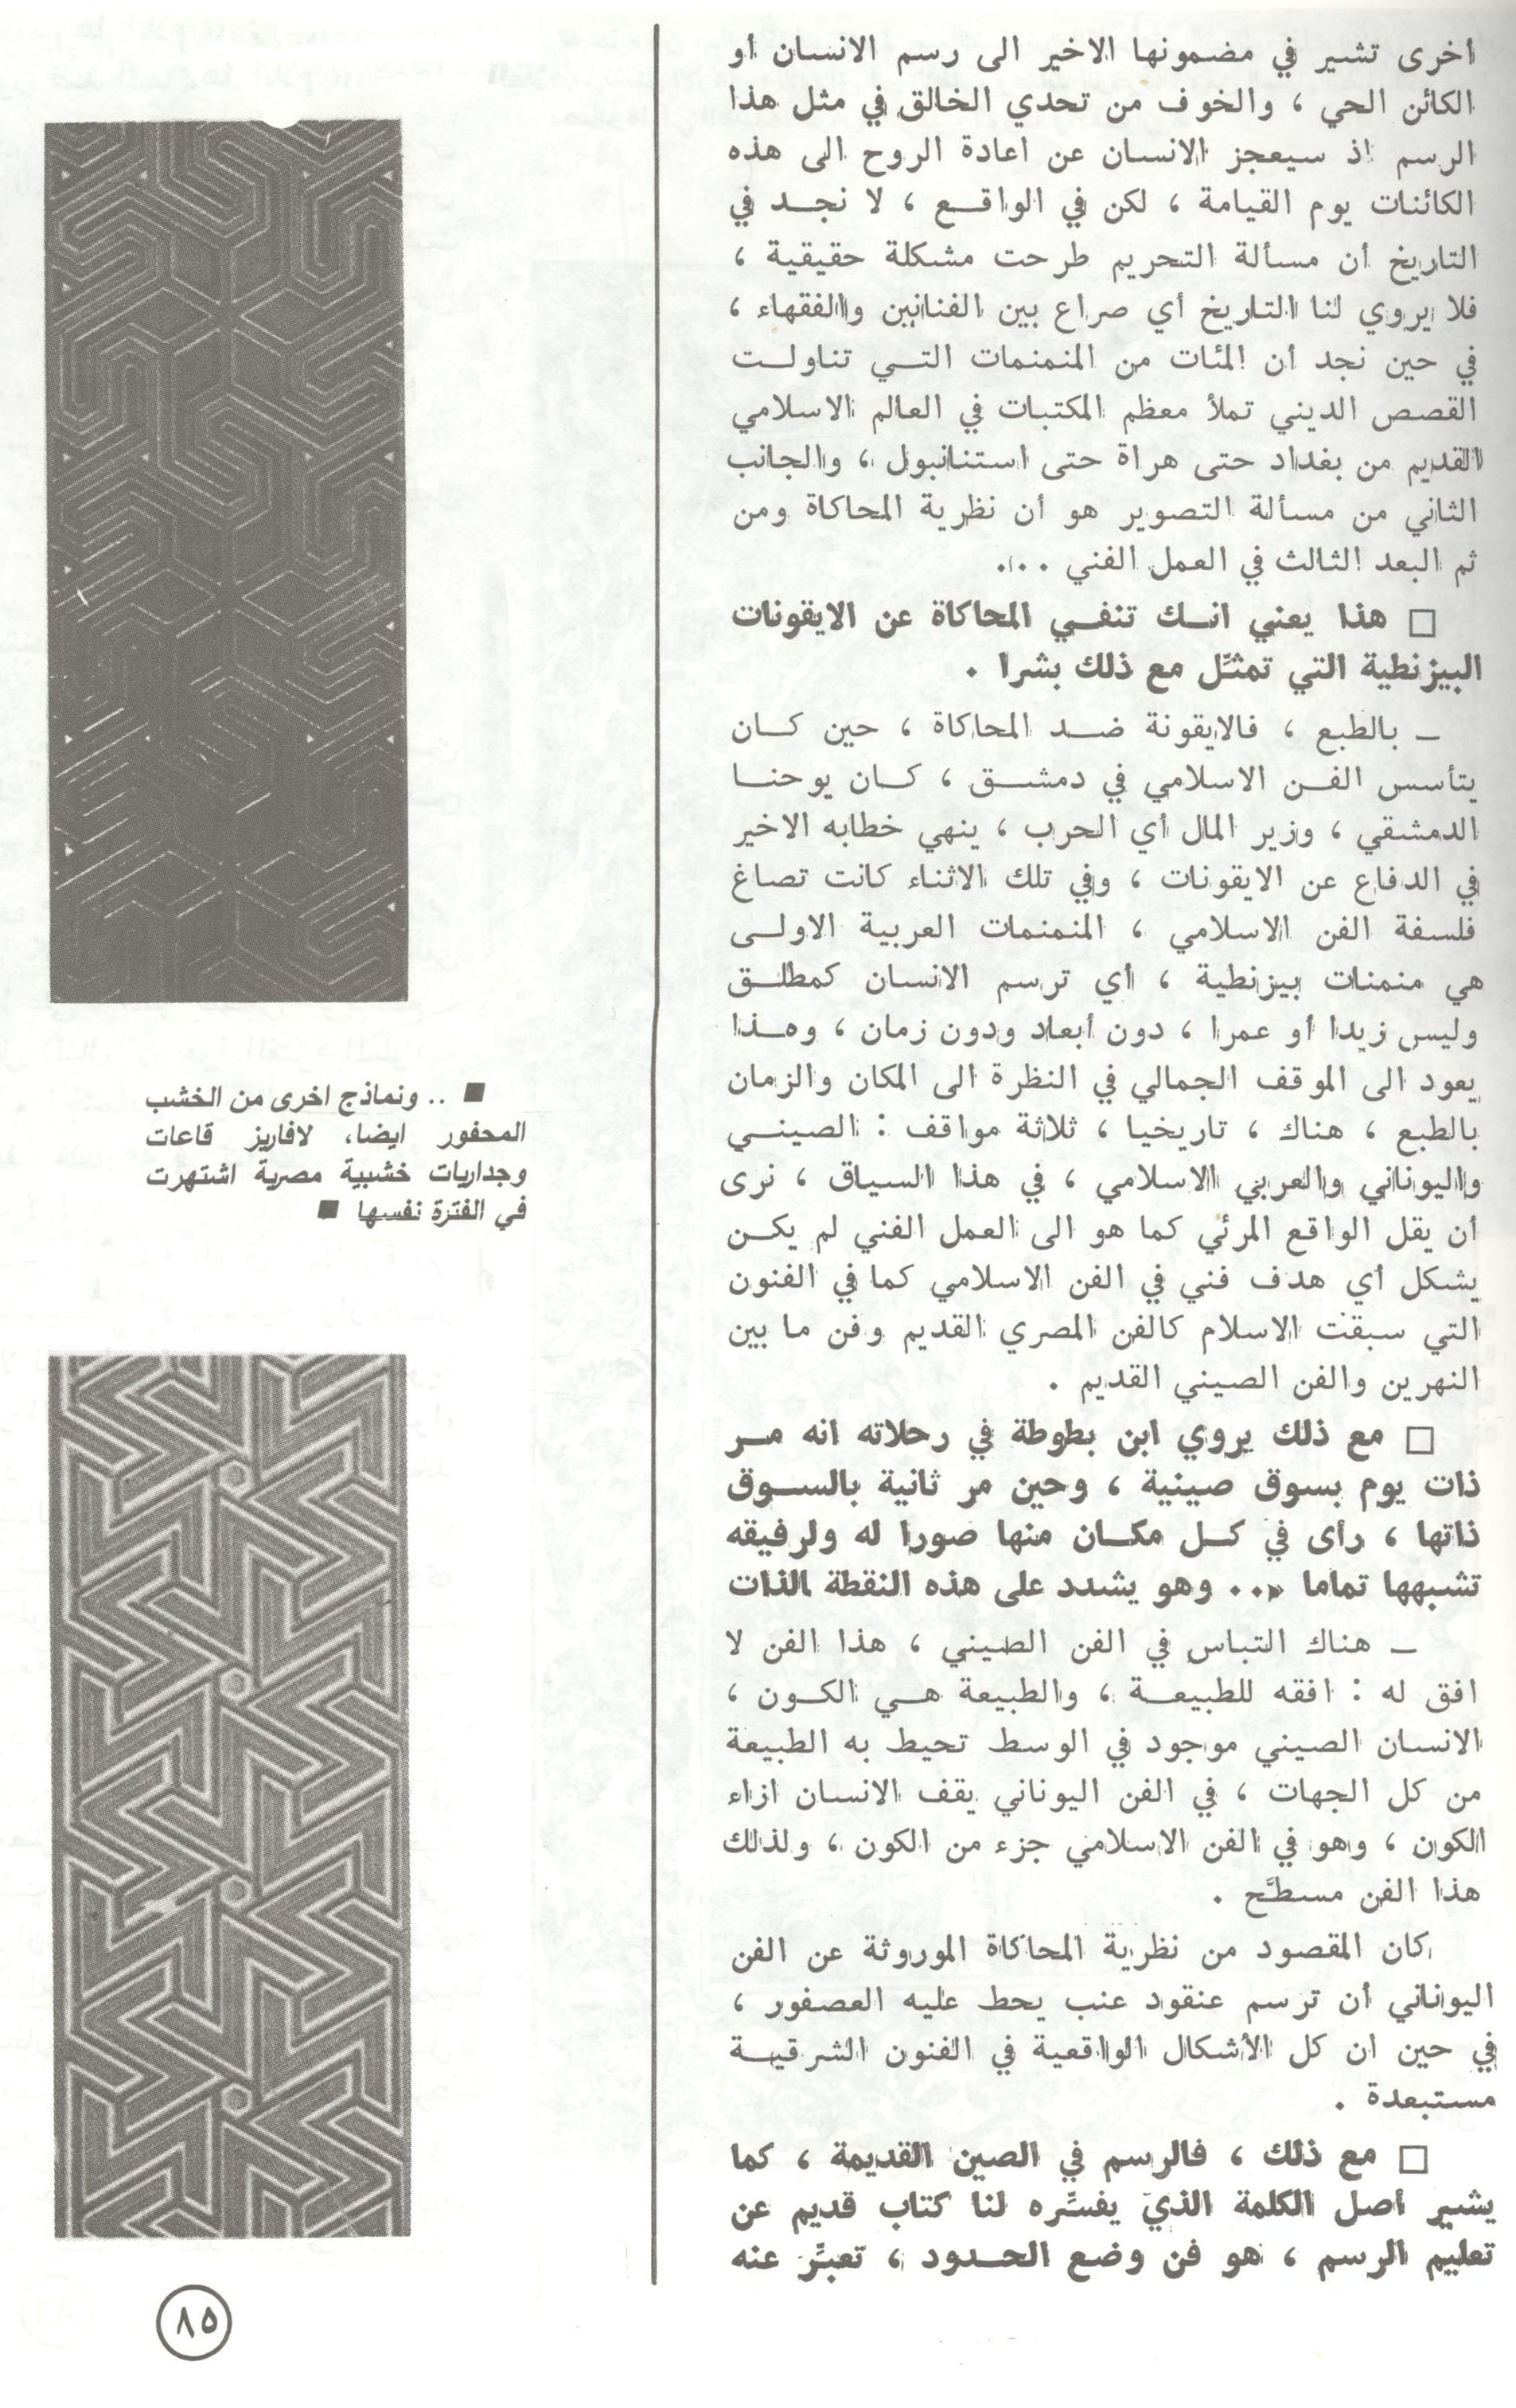 أخرى تشير في مضمونها الاخير الى رسم الانسان أو
الكائن الحي ، والخوف من تحدي الخالق في مثل هذا
الرسم اذ سيعجز الانسان عن اعادة الروح الى هذه
الكائنات يوم القيامة ، لكن في الواقع ، لا نجد في
التاريخ أن مسألة التحريم طرحت مشكلة حقيقية ،
فلا يروي لنا التاريخ أي صراع بين الفنانين والفقهاء ،
في حين نجد أن المئات من المنمنمات التي تناولت
القصص الديني تملأ معظم المكتبات في العالم الاسلامي
القديم من بغداد حتى هراة حتى استنانبول ، والجانب
الثاني من مسألة التصوير هو أن نظرية المحاكاة ومن
ثم البعد الثالث في العمل الفني ...
□ هذا يعني انك تنفي المحاكاة عن الايقونات
البيزنطية التي تمثّل مع ذلك بشرا .
ـ بالطبع ، فالايقونة ضد المحاكاة ، حين كان
يتأسس الفن الاسلامي في دمشق ، كان يوحنا
الدمشقي ، وزير المال أي الحرب ، ينهي خطابه الاخير
في الدفاع عن الايقونات ، وفي تلك الاثناء كانت تصاغ
فلسفة الفن الاسلامي ، المنمنمات العربية الاولى
هي منمنات بيزنطية ، أي ترسم الانسان كمطلق
وليس زيدا أو عمرا ، دون أبعاد ودون زمان ، وهذا
يعود الى الموقف الجمالي في النظرة الى المكان والزمان
بالطبع ، هناك ، تاريخيا ، ثلاثة مواقف : الصيني
واليوناني والعربي الاسلامي ، في هذا السياق ، نرى
أن يقل الواقع المرئي كما هو الى العمل الفني لم يكن
يشكل أي هدف فني في الفن الاسلامي كما في الفنون
التي سبقت الاسلام كالفن المصري القديم وفن ما بين
النهرين والفن الصيني القديم .
□ مع ذلك يروي ابن بطوطة في رحلاته انه مر
ذات يوم بسوق صينية ، وحين مر ثانية بالسوق
ذاتها ، رأى في كل مكان منها صورا له ولرفيقه
تشبهها تماما «.. وهو يشدد على هذه النقطة الذات
ـ هناك التباس في الفن الصيني ، هذا الفن لا
افق له : افقه للطبيعة ، والطبيعة هي الكون ،
الانسان الصيني موجود في الوسط تحيط به الطبيعة
من كل الجهات ، في الفن اليوناني يقف الانسان ازاء
الكون ، وهو في الفن الاسلامي جزء من الكون ، ولذلك
هذا الفن مسطَّح .
كان المقصود من نظرية المحاكاة الموروثة عن الفن
اليوناني أن ترسم عنقود عنب يحط عليه العصفور ،
في حين ان كل الأشكال الواقعية في الفنون الشرقية
مستبعدة .
□ مع ذلك ، فالرسم في الصين القديمة ، كما
يشير أصل الكلمة الذي يفسِّره لنا كتاب قديم عن
تعليم الرسم ، هو فن وضع الحدود ، تعبِّر عنه
■ .. ونماذج اخرى من الخشب
المحفور ايضا، لافاريز قاعات
وجداريات خشبية مصرية اشتهرت
في الفترة نفسها ■
٨٥